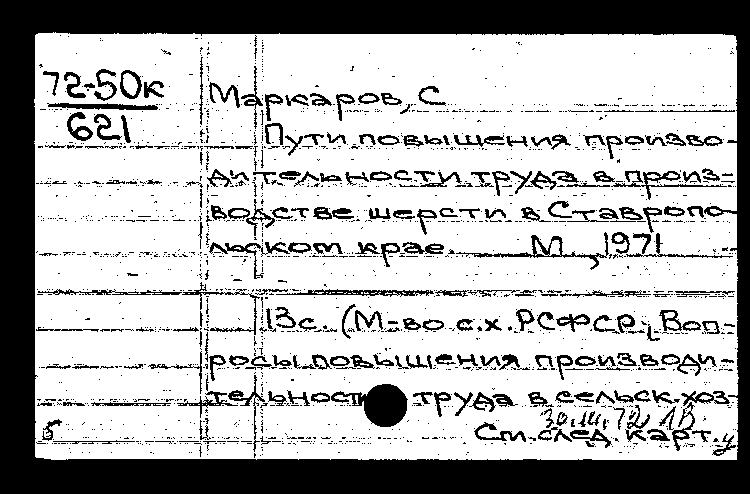 72-50к
621
Маркаров, С
Пути повышения произво-
дительности труда в произ-
водстве шерсти в Ставропо-
льском крае. М, 1971
13с. (М-во с.х. РСФСР. Воп-
росы повышения производи-
тельност труда в сельск.хоз-
См. след. карт.